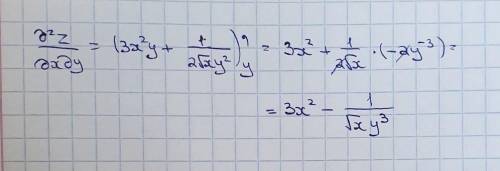 ∂²z/∂x∂y = (3x²y + 1/(2√x y²))'y = 3x² + 1/(2√x) · (-2y⁻³) =
= 3x² - 1/(√x y³)